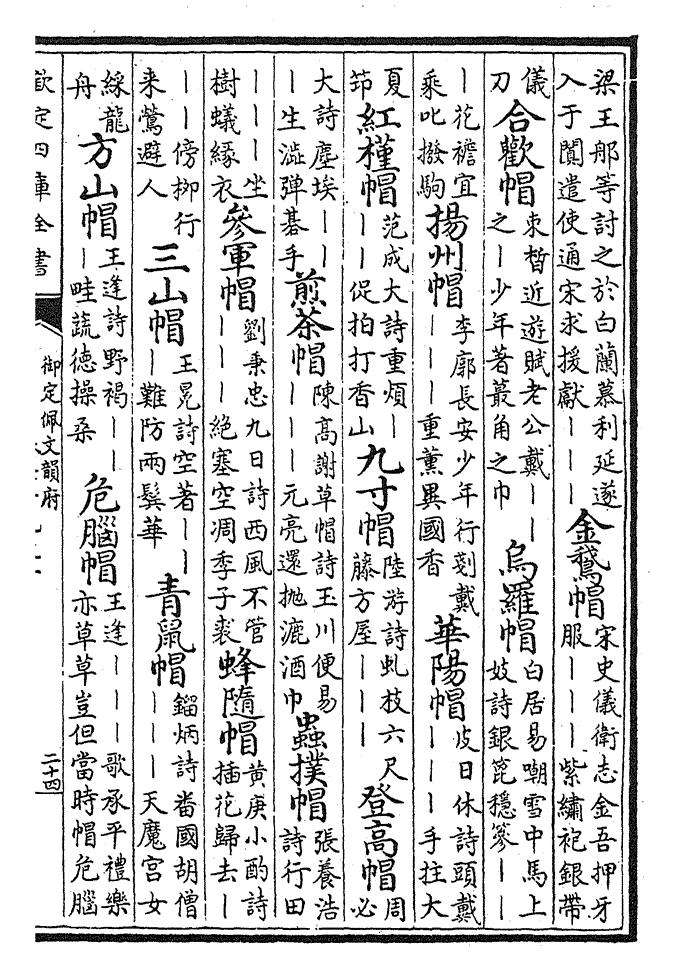 梁王郍等討之於白蘭慕利延遂
入于闐遣使通宋求援獻｜｜｜
金鵝帽
宋史儀衛志金吾押牙
服｜｜｜紫繡袍銀帶
儀
刀
合歡帽
束晳近遊賦老公戴｜｜
之｜少年著蕞角之巾
烏羅帽
白居易嘲雪中馬上
妓詩銀箆穩篸｜｜
｜花襜宜
乘叱撥駒
揚州帽
李廓長安少年行剗戴
｜｜｜重薰異國香
華陽帽
皮日休詩頭戴
｜｜｜手拄大
夏
笻
紅槿帽
范成大詩重煩｜
｜｜促拍打香山
九寸帽
陸游詩虬枝六尺
藤方屋｜｜｜
登高帽
周
必
大詩塵埃｜｜
｜生澁彈碁手
煎茶帽
陳高謝草帽詩王川便易
｜｜｜元亮還抛漉酒巾
蟲撲帽
張養浩
詩行田
｜｜｜坐
樹蟻緣衣
參軍帽
劉秉忠九日詩西風不管
｜｜｜絕塞空凋季子裘
蜂隨帽
黃庚小酌詩
插花歸去｜
｜｜傍柳行
来鶯避人
三山帽
王冕詩空著｜｜
｜難防兩鬢華
青鼠帽
鎦炳詩畨國胡僧
｜｜｜天魔宫女
綵龍
舟
方山帽
王逢詩野褐｜｜
｜畦蔬德操桑
危腦帽
王逢｜｜｜歌承平禮樂
亦草草豈但當時帽危腦
欽定四庫全書
御定佩文韻府
二十四